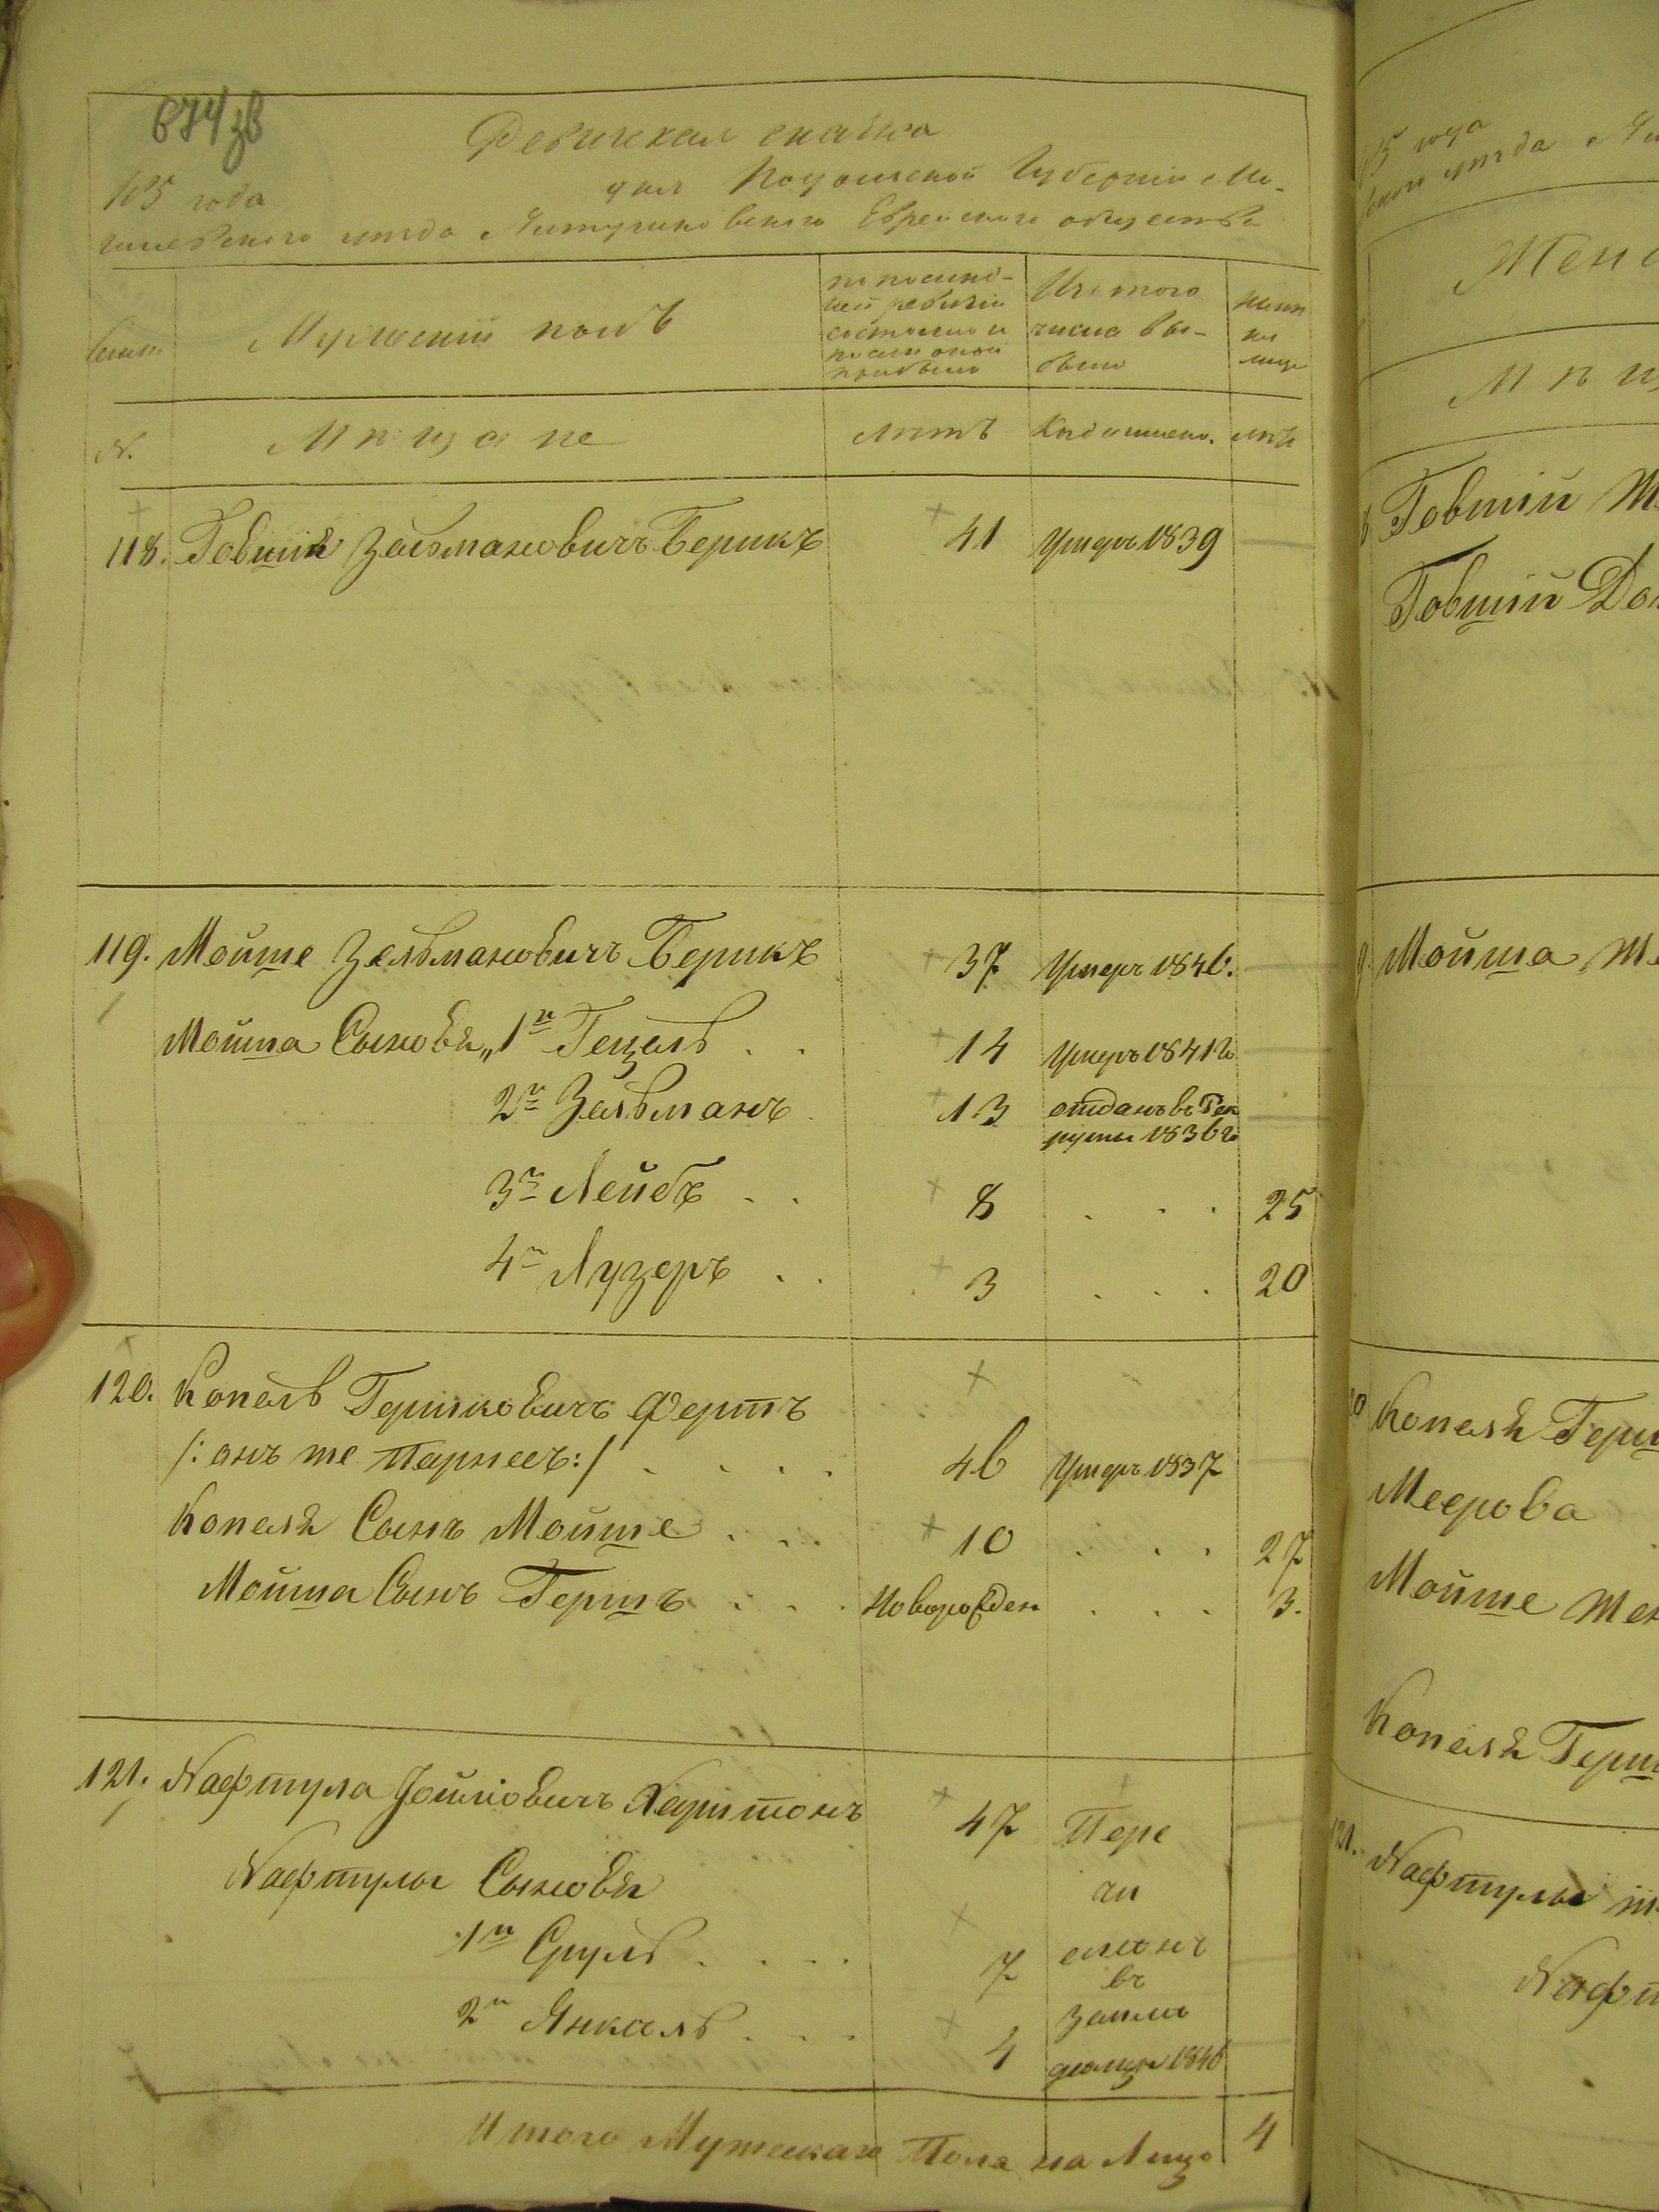 674 зв
Ревизская сказка
185 года
дня Подольской Губернiи Мо-
гилевского уезда Яктушковского Еврейского общества
Семьи
Мужескiй полъ
по послед-
ней ревизiи
состояло и
после оной
прибыло
Изъ того
числа вы-
было
Ныне
на
лицо
№.
Мѣщане
Лѣтъ
Когда именно.
лѣтъ
118. Товшiй Зельмановичъ Берикъ 41 Умеръ 1839
119. Мойше Зельмановичъ Берикъ 37 Умеръ 1846.
Мойша Сыновья „1й Гецель . . 14 Умеръ 1841го
2й Зельманъ . 13 отданъ въ Рек
руты 1836го
3й Лейбъ . . 8 . . . 25
4й Лузеръ . . 3 . . . 20
120. Копель Гершковичъ Фертъ
/: онъ же Парнесъ :/ . . . . 46 Умеръ 1837
Копеля Сынъ Мойше . . . 10 . . . 27
Мойша Сынъ Гершъ . . . Новорожден . . . 3.
121. Нафтула Йошковичъ Харитонъ 47 Пере
Нафтулы Сыновья чи
1й Сруль . . . . 7 сленъ
въ
2й Янкель . . . 4 Земле
дельцы 1846
Итого Мужескаго Пола на Лицо 4
185 года
Женс
Мѣщ
Товшiй Ж
Товшiй До
Мойша Же
Копеля Герш
Меерова
Мойше Жен
Копеля Герш
121. Нафтулы
Нафт